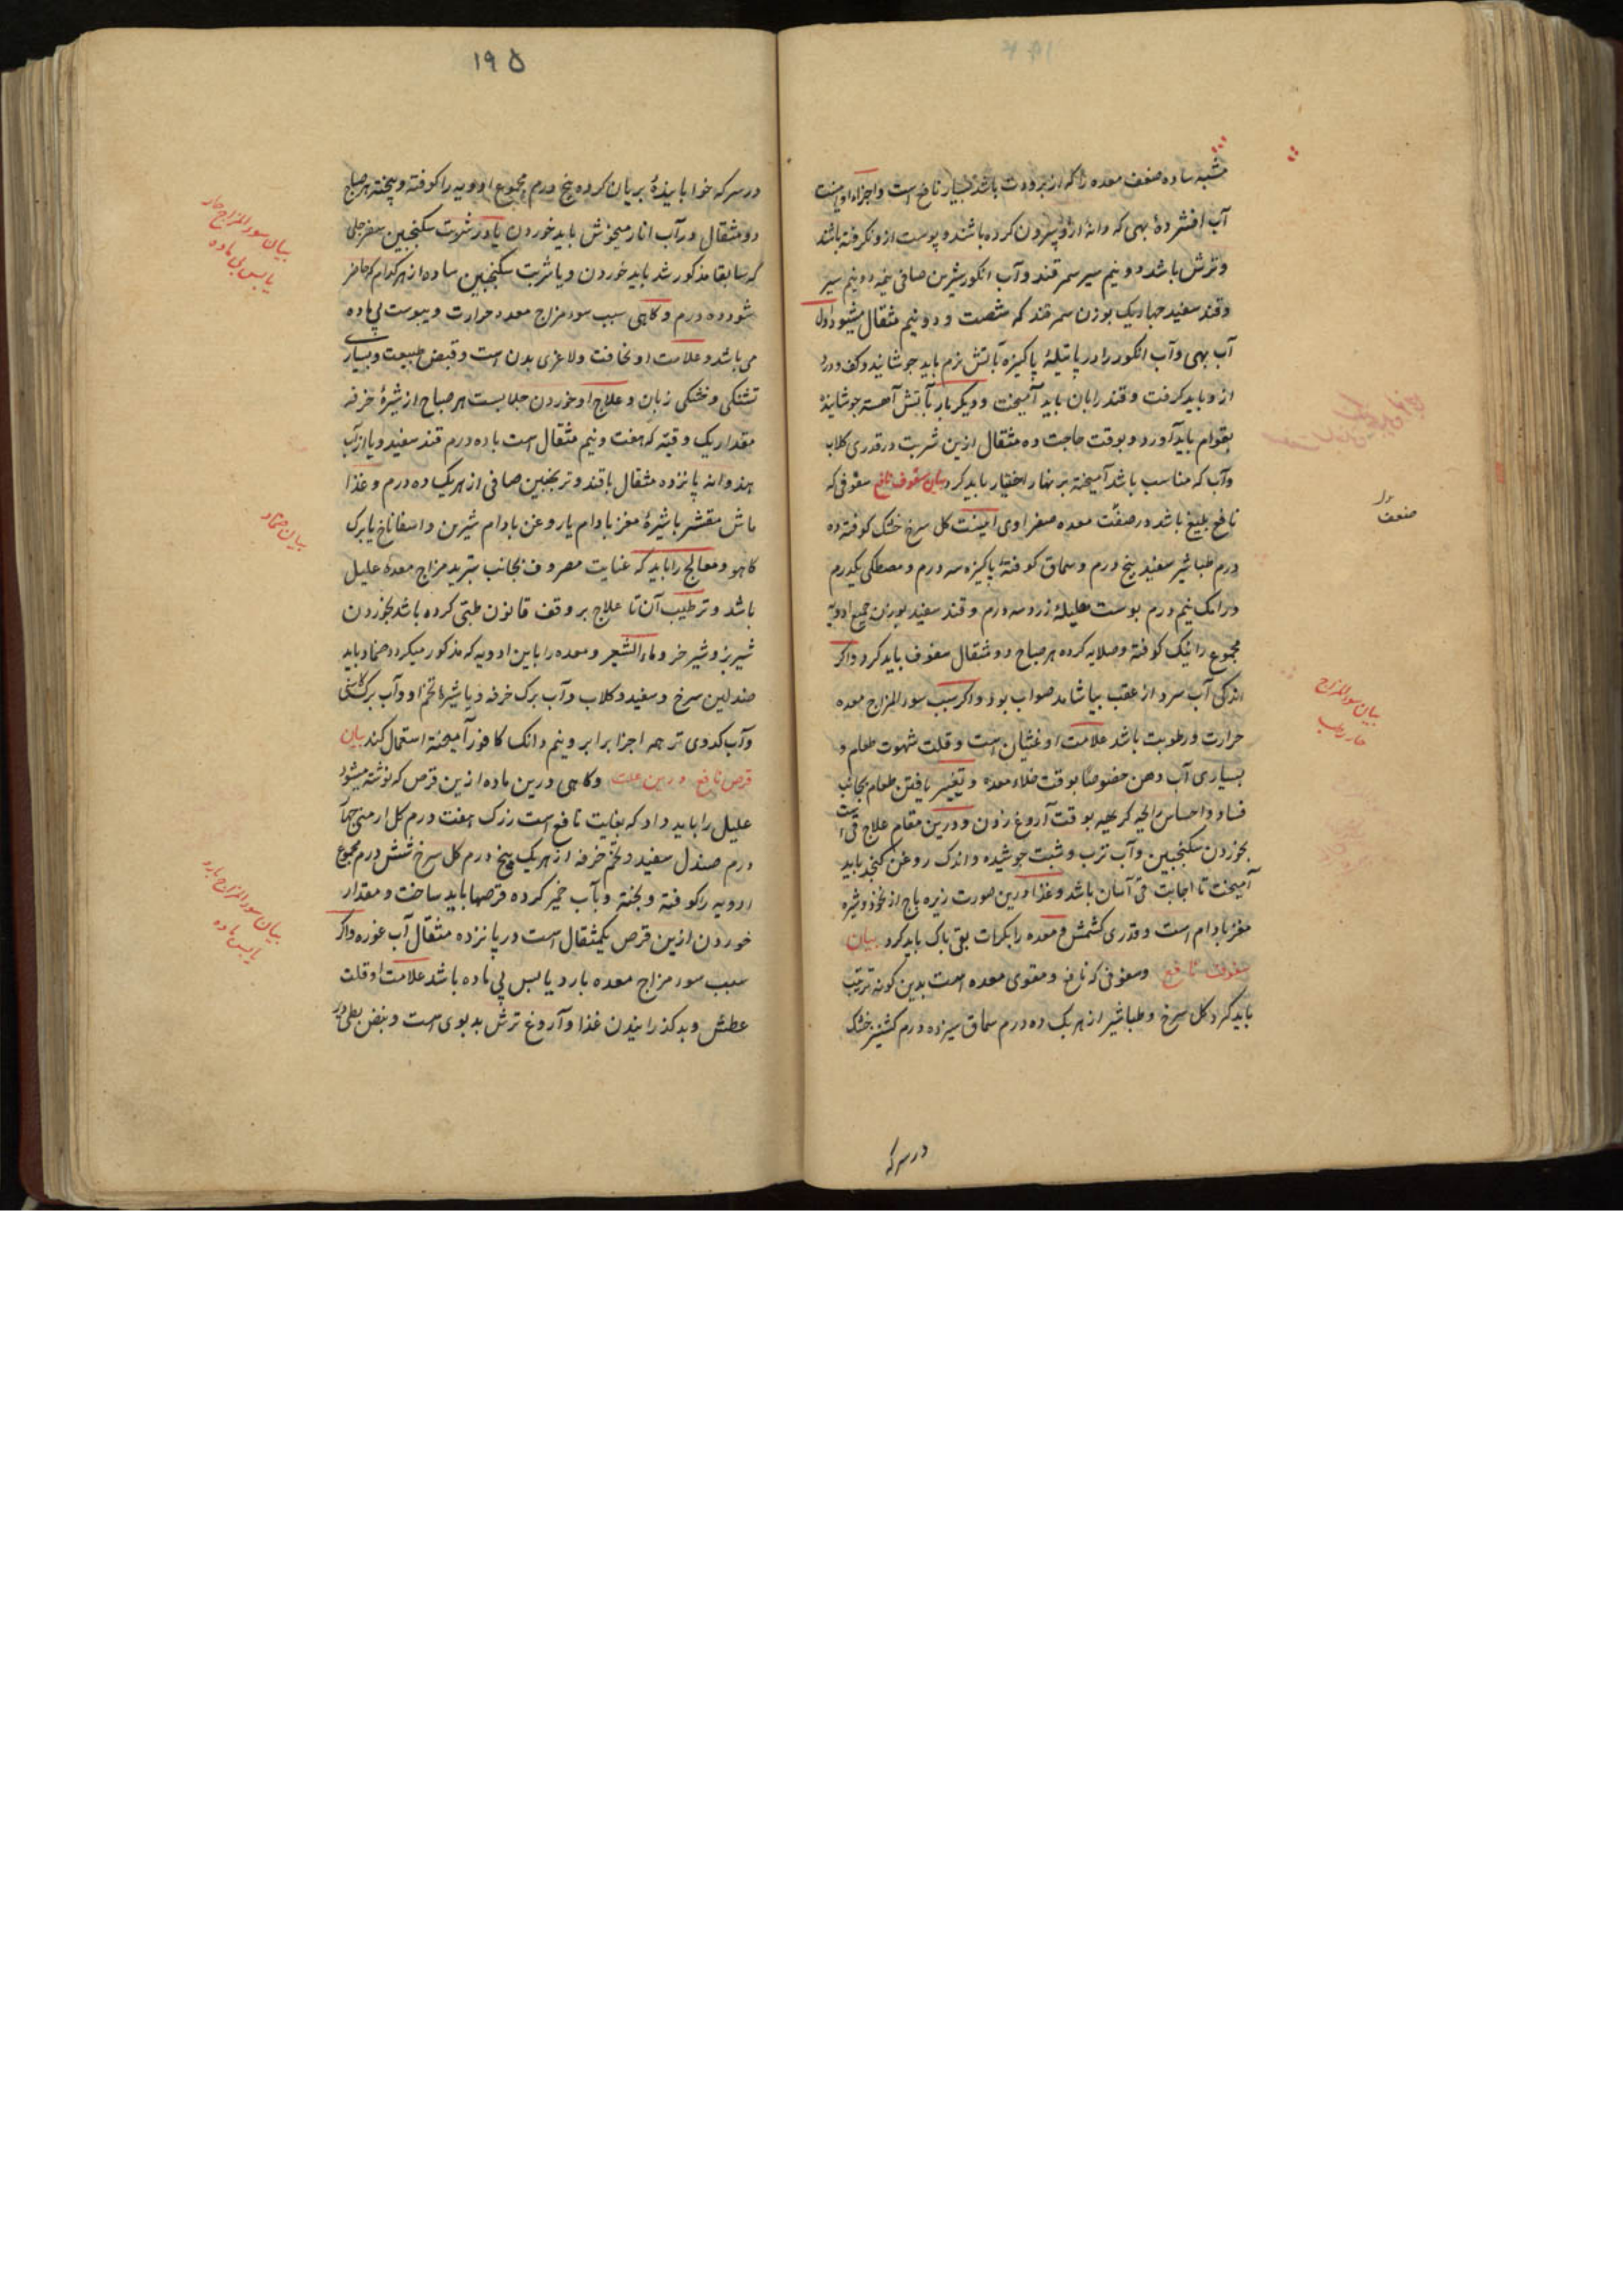 میبه ساده ضعف معده را که از برودت باشد بسیار نافع است و اجزاء او اینست
آب افشردهٔ بهی که دانهٔ ازو بیرون کرده باشند و پوست ازو نگرفته باشند
و ترش باشد دو نیم سیر سمرقند و آب انگور شیرین صافی نیمه دو نیم سیر
و قند سفید بوزن سمرقند که شصت و دو نیم مثقال میشود اول
آب بهی و آب انگور را در پاتیلهٔ پاکیزه بآتش نرم باید جوشانید و کف و درد
ازو باید گرفت و قند را بان باید آمیخت و دیگر بار بآتش آهسته جوشانیده
بقوام باید آورد و بوقت حاجت ده مثقال ازین شربت در قدری گلاب
و آب که مناسب باشد آمیخته بر نهار اختیار باید کرد بیان سفوف نافع سفوفی که
نافع بلیغ باشد در ضعف معده صفراوی اینست گل سرخ خشک کوفته ده
درم طباشیر سفید پنج درم و سماق کوفتهٔ پاکیزه سه درم و مصطکی یکدرم
و رامک نیم درم پوست هلیلهٔ زرد سه درم و قند سفید بوزن جمیع ادویه
مجموع را نیک کوفته و صلایه کرده هر صباح دو مثقال سفوف باید کرد و اگر
اندکی آب سرد از عقب بیاشامد صواب بود و اگر سبب سوء المزاج معده
حرارت و رطوبت باشد علامت او غثیان است و قلت شهوت طعام و
بسیاری آب دهن خصوصا بوقت خلاء معده و تغییر یافتن طعام بجانب
فساد و احساس رایحه کریهه بوقت آروغ زدن و درین مقام علاج قی است
بخوردن سکنجبین و آب ترب و شبت جوشیده و اندک روغن کنجد باید
آمیخت تا اجابت قی آسان باشد و غذا درین صورت زیره باج از نخود و شیره
مغز بادام است و قدری کشمش و معده را بکرات بقی پاک باید کرد بیان
سفوف نافع و سفوفی که نافع و مقوی معده است بدین گونه ترتیب
باید کرد گل سرخ و طباشیر از هر یک ده درم سماق سیزده درم کشنیز خشک
در سرکه
ضعف
بیان سوء المزاج
حار رطب
۱۹۵
در سرکه خوابانیدهٔ بریان کرده پنج درم مجموع ادویه را کوفته و بیخته هر صباح
دو مثقال در آب انار میخوش باید خوردن یا در شربت سکنجبین سفرجلی
که سابقا مذکور شد باید خوردن و یا شربت سکنجبین ساده از هر کدام که حاضر
شود ده درم و گاهی سبب سوء مزاج معده حرارت و یبوست بی ماده
می باشد و علامت او نحافت و لاغری بدن است و قبض طبیعت و بسیاری
تشنگی و خشکی زبان و علاج او خوردن جلابست هر صباح از شیرهٔ خرفه
مقدار یک وقیه که هفت و نیم مثقال است با ده درم قند سفید و یا از آب
هندوانه پانزده مثقال با قند و ترنجبین صافی از هر یک ده درم و غذا
ماش مقشر با شیرهٔ مغز بادام یا روغن بادام شیرین و اسفاناخ یا برک
کاهو و معالج را باید که عنایت مصروف بجانب تبرید مزاج معدهٔ علیل
باشد و ترطیب آن تا علاج بر وفق قانون طبی کرده باشد بخوردن
شیر بز و شیر خر و ماء الشعیر و معده را باین ادویه که مذکور میگردد ضماد باید
صندلین سرخ و سفید و گلاب و آب برک خرفه و یا شیرهٔ تخم او و آب برک کاسنی
و آب کدوی تر همه اجزا برابر و نیم دانک کافور آمیخته استعمال کند بیان
قرص نافع درین علت و گاهی درین ماده ازین قرص که نوشته میشود
علیل را باید داد که بغایت نافع است زرک هفت درم گل ارمنی چهار
درم صندل سفید و تخم خرفه از هر یک پنج درم گل سرخ شش درم مجموع
ادویه را کوفته و بیخته و بآب خمیر کرده قرصها باید ساخت و مقدار
خوردن ازین قرص یکمثقال است در پانزده مثقال آب غوره و اگر
سبب سوء مزاج معده بارد یابس بی ماده باشد علامت او قلت
عطش و بد گذرانیدن غذا و آروغ ترش بدبوی است و نبض بطی و
بیان سوء المزاج حار
یابس بی ماده
بیان ضماد
بیان سوء المزاج بارد
یابس ماده